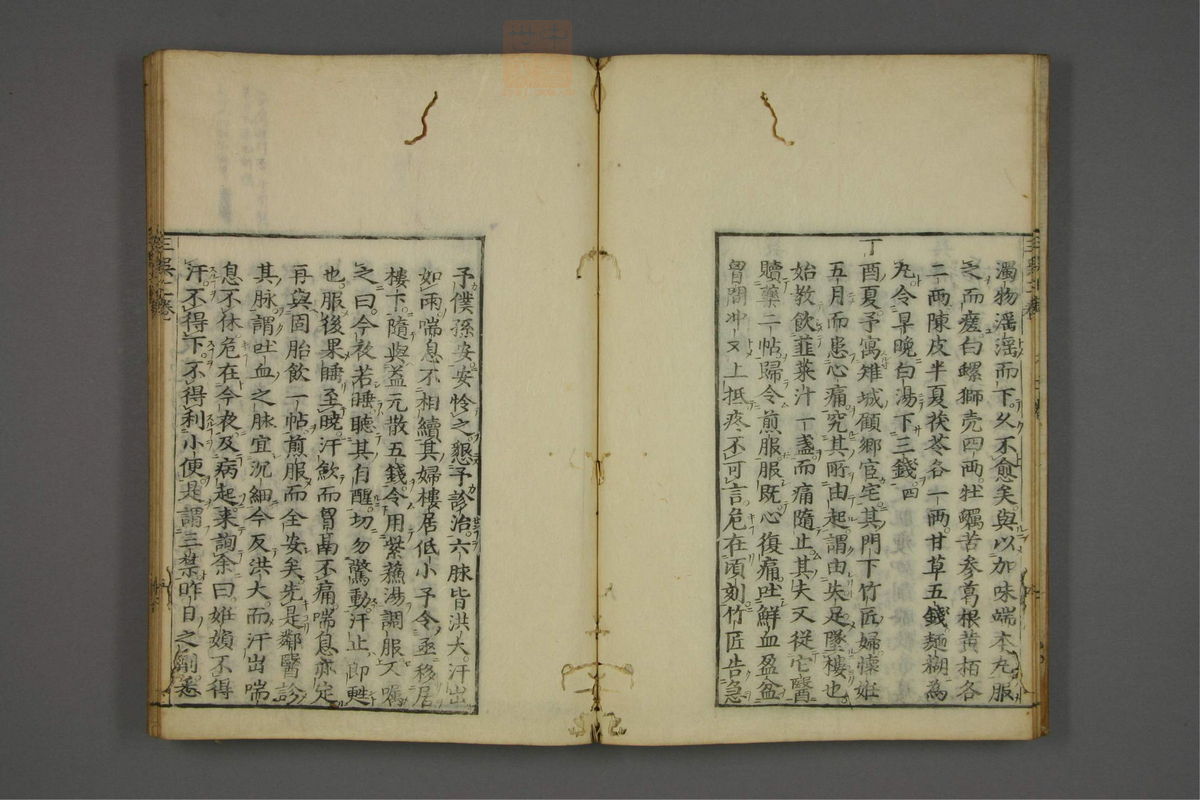 濁物滛滛而下久不愈矣與以加味端本丸服
之而瘥白螺獅壳四兩牡蠣苦参葛根黄栢各
二兩陳皮半夏茯苓各一兩甘草五錢麺糊為
丸令早晩白湯下三錢
丁酉夏予寓雉城顧鄉宦宅其門下竹匠婦懐妊
五月而患心痛究其所由起謂由失足墜樓也
始教飲韮菜汁一盞而痛隨止其夫又從它醫
贖藥二帖歸令煎服服既心復痛吐鮮血盈盆
胷間冲又上抵疼不可言危在頃刻竹匠告急
予僕孫安安怜之懇予診治六脉皆洪大汗出
如雨喘息不相續其婦樓居低小予令亟移居
樓下隨與益元散五錢令用紫蘓湯調服又嘱
之曰今夜若睡聽其自醒切勿驚動汗止即甦
也服後果睡至暁汗斂而胷鬲不痛喘息亦定
再與固胎飲一帖煎服而全安矣先是鄰醫診
其脉謂吐血之脉宜沉細今反洪大而汗出喘
息不休危在今夜及病起来詢余曰妊嬪不得
汗不得下不得利小便是謂三禁昨日之劑悉